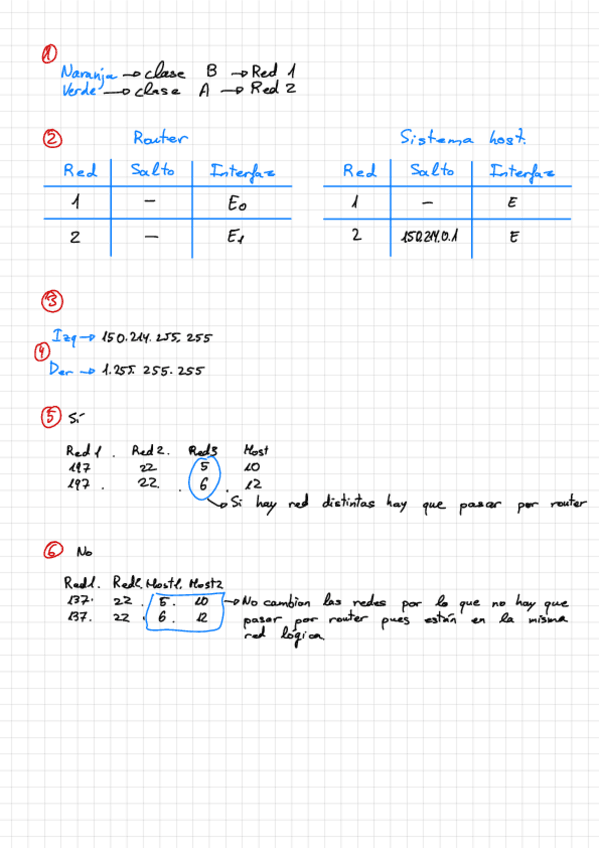 1
Naranja → clase B → Red 1
Verde → clase A → Red 2
2 Router Sistema host.
Red Salto Interfaz Red Salto Interfaz
1 - E0 1 - E
2 - E1 2 150.214.0.1 E
3
Izq → 150.214.255.255
4
Der → 1.255.255.255
5 Sí
Red1. Red2. Red3 Host
197 22 5 10
197. 22. . 6 . 12
Si hay red distintas hay que pasar por router
6 No
Red1. Red2. Host1. Host2
137. 22. 5. 10 → No cambian las redes por lo que no hay que
137. 22. 6. 12 pasar por router pues están en la misma
red lógica